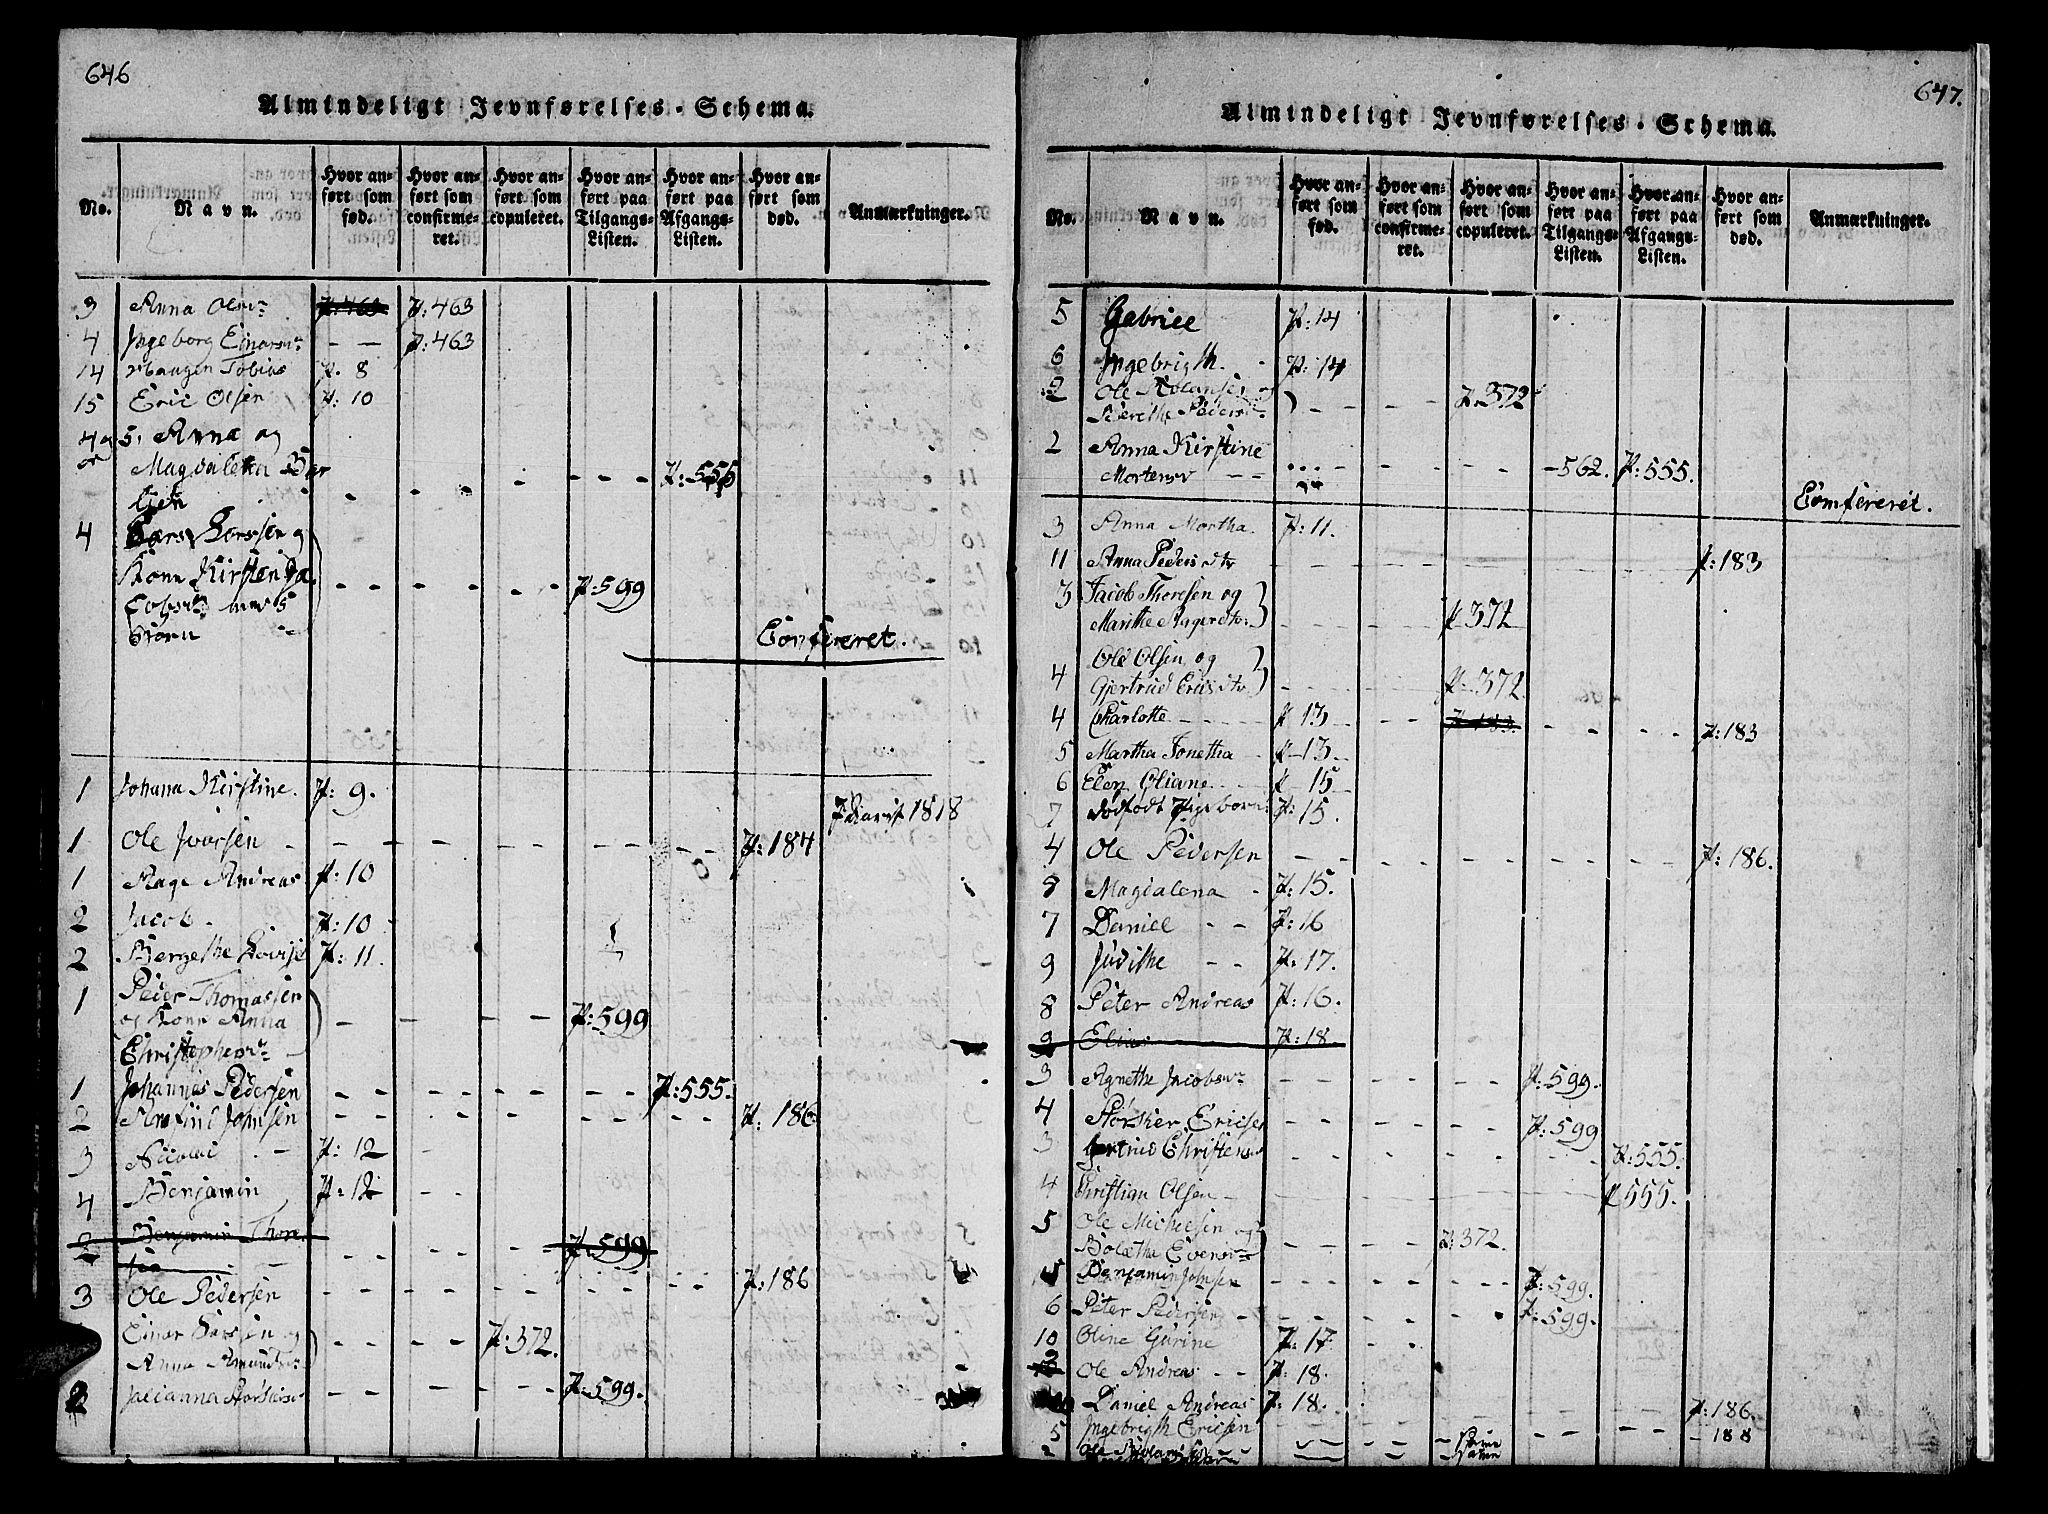 646
Almindeligt Jevnførelses-Schema.
No.
Navn.
Hvor anført som fød.
Hvor anført som confirmeret.
Hvor anført som copuleret.
Hvor anført paa Tilgangs-Listen.
Hvor anført paa Afgangs-Listen.
Hvor anført som død.
Anmærkninger.
3 Anna Olsdr P: 463 P: 463
4 Ingeborg Einarsdr - - P: 463
14 Haagen Tobias P. 8
15 Eric Olsen P: 10
4 og 5. Anna og
Magdalena - - - - - P: 555
4 Lars Larssen og
Kone Kirsten Ja-
cobsdr med 5 - - - - P: 599
Børn
Confereret.
1 Johana Kirstine. P: 9.
1818
1 Ole Ivarsen - - - - - - P: 184
1 Aage Andreas P: 10
2 Jacob. P: 10
2 Bergethe Lovise P: 11.
1 Peder Thomassen
og Kone Anna - - - - P: 599
Christophersdr
1 Johannes Pedersen - - - - P: 555.
2 Johnsen - - - - P: 186
3 Nicolai - P: 12
4 Benjamin P: 12
2 Benjamin Thore
sen - - - - P: 599
3 Ole Pedersen - - - - - P: 186
Einar Larssen og
Anna Amundsdr - - - P: 372.
2 Julianna - - - - P: 599.
647.
Almindeligt Jevnførelses-Schema.
No.
Navn.
Hvor anført som fød.
Hvor anført som confirmeret.
Hvor anført som copuleret.
Hvor anført paa Tilgangs-Listen.
Hvor anført paa Afgangs-Listen.
Hvor anført som død.
Anmærkninger.
5 Gabriel P: 14
6 Ingebrigth. P: 14
2 Ole og
Pedersdr - - - P. 372
2 Anna Kirstine
Mortensdr - - - - - 562. P: 555.
Confereret.
3 Anna Martha P: 11.
11 Anna Pedersdtr P: 183
3 Jacob Thoresen og
Marithe Aagesdtr: - - - P 372
4 Ole Olsen og
Gjertrud Ericsdtr - - - P. 372
4 Charlotte - - P 13 - - P. 183. - - - P: 183
5 Martha Jonetha P 13
6 Elen Oliane P 15
7 dødfødt Pigebarn P: 15.
4 Ole Pedersen - - - - - P: 186.
8 Magdalena P: 15.
7 Daniel - - P: 16
9 Judithe - - P: 17.
8 Peter Andreas P: 16.
9 Elias P: 18
3 Agnethe Jacobsdr - - - P: 599.
4 Størker Ericsen - - - P: 599
3 Gertrud Christensdr - - - - P: 555.
4 Christian Olsen - - - - P 555.
5 Ole Michelsen og
Bolætha Evensdr - - - P: 372.
5 Benjamin Johnsen - - - P: 599.
6 Peter Pedersen - - - P: 599.
10 Oline Gurine P: 17
Ole Andreas - - P: 18.
Daniel Andreas P: 18. - - - - P: 186.
5 Ingebrigth Ericsen - - - - 188
2 Ole